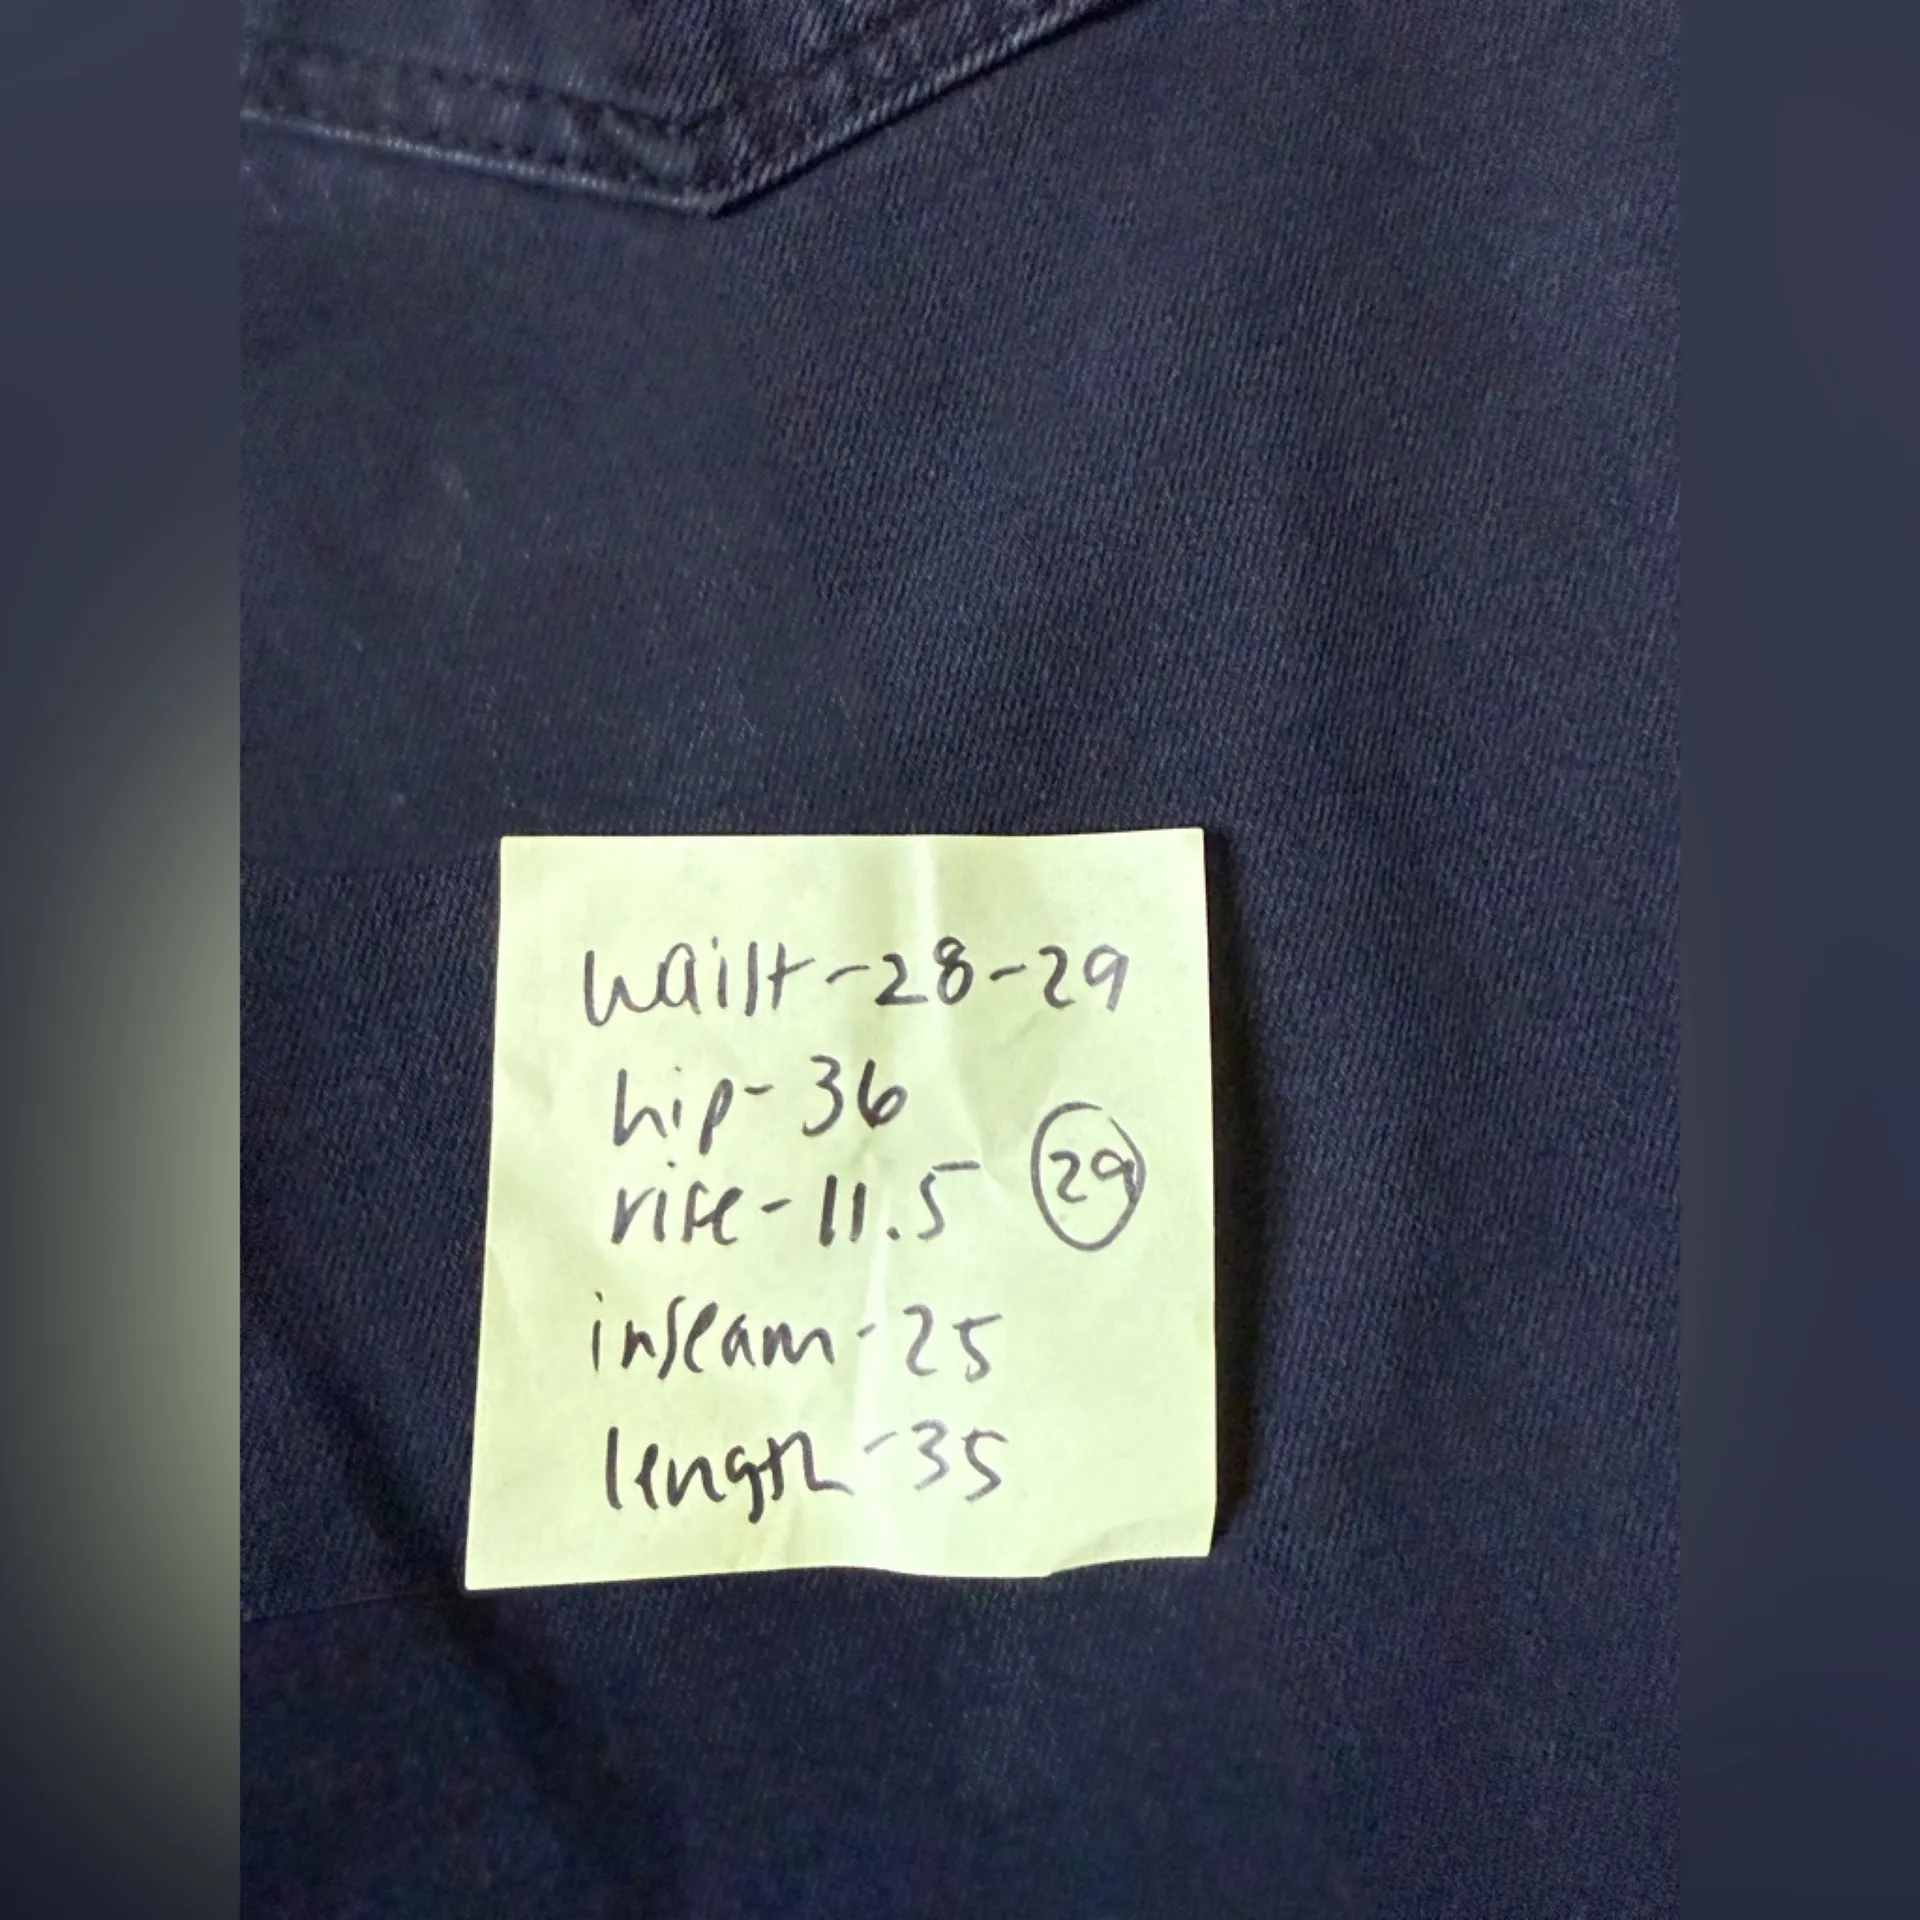 waist-28-29
hip-36
rise-11.5
29
inseam-25
length-35